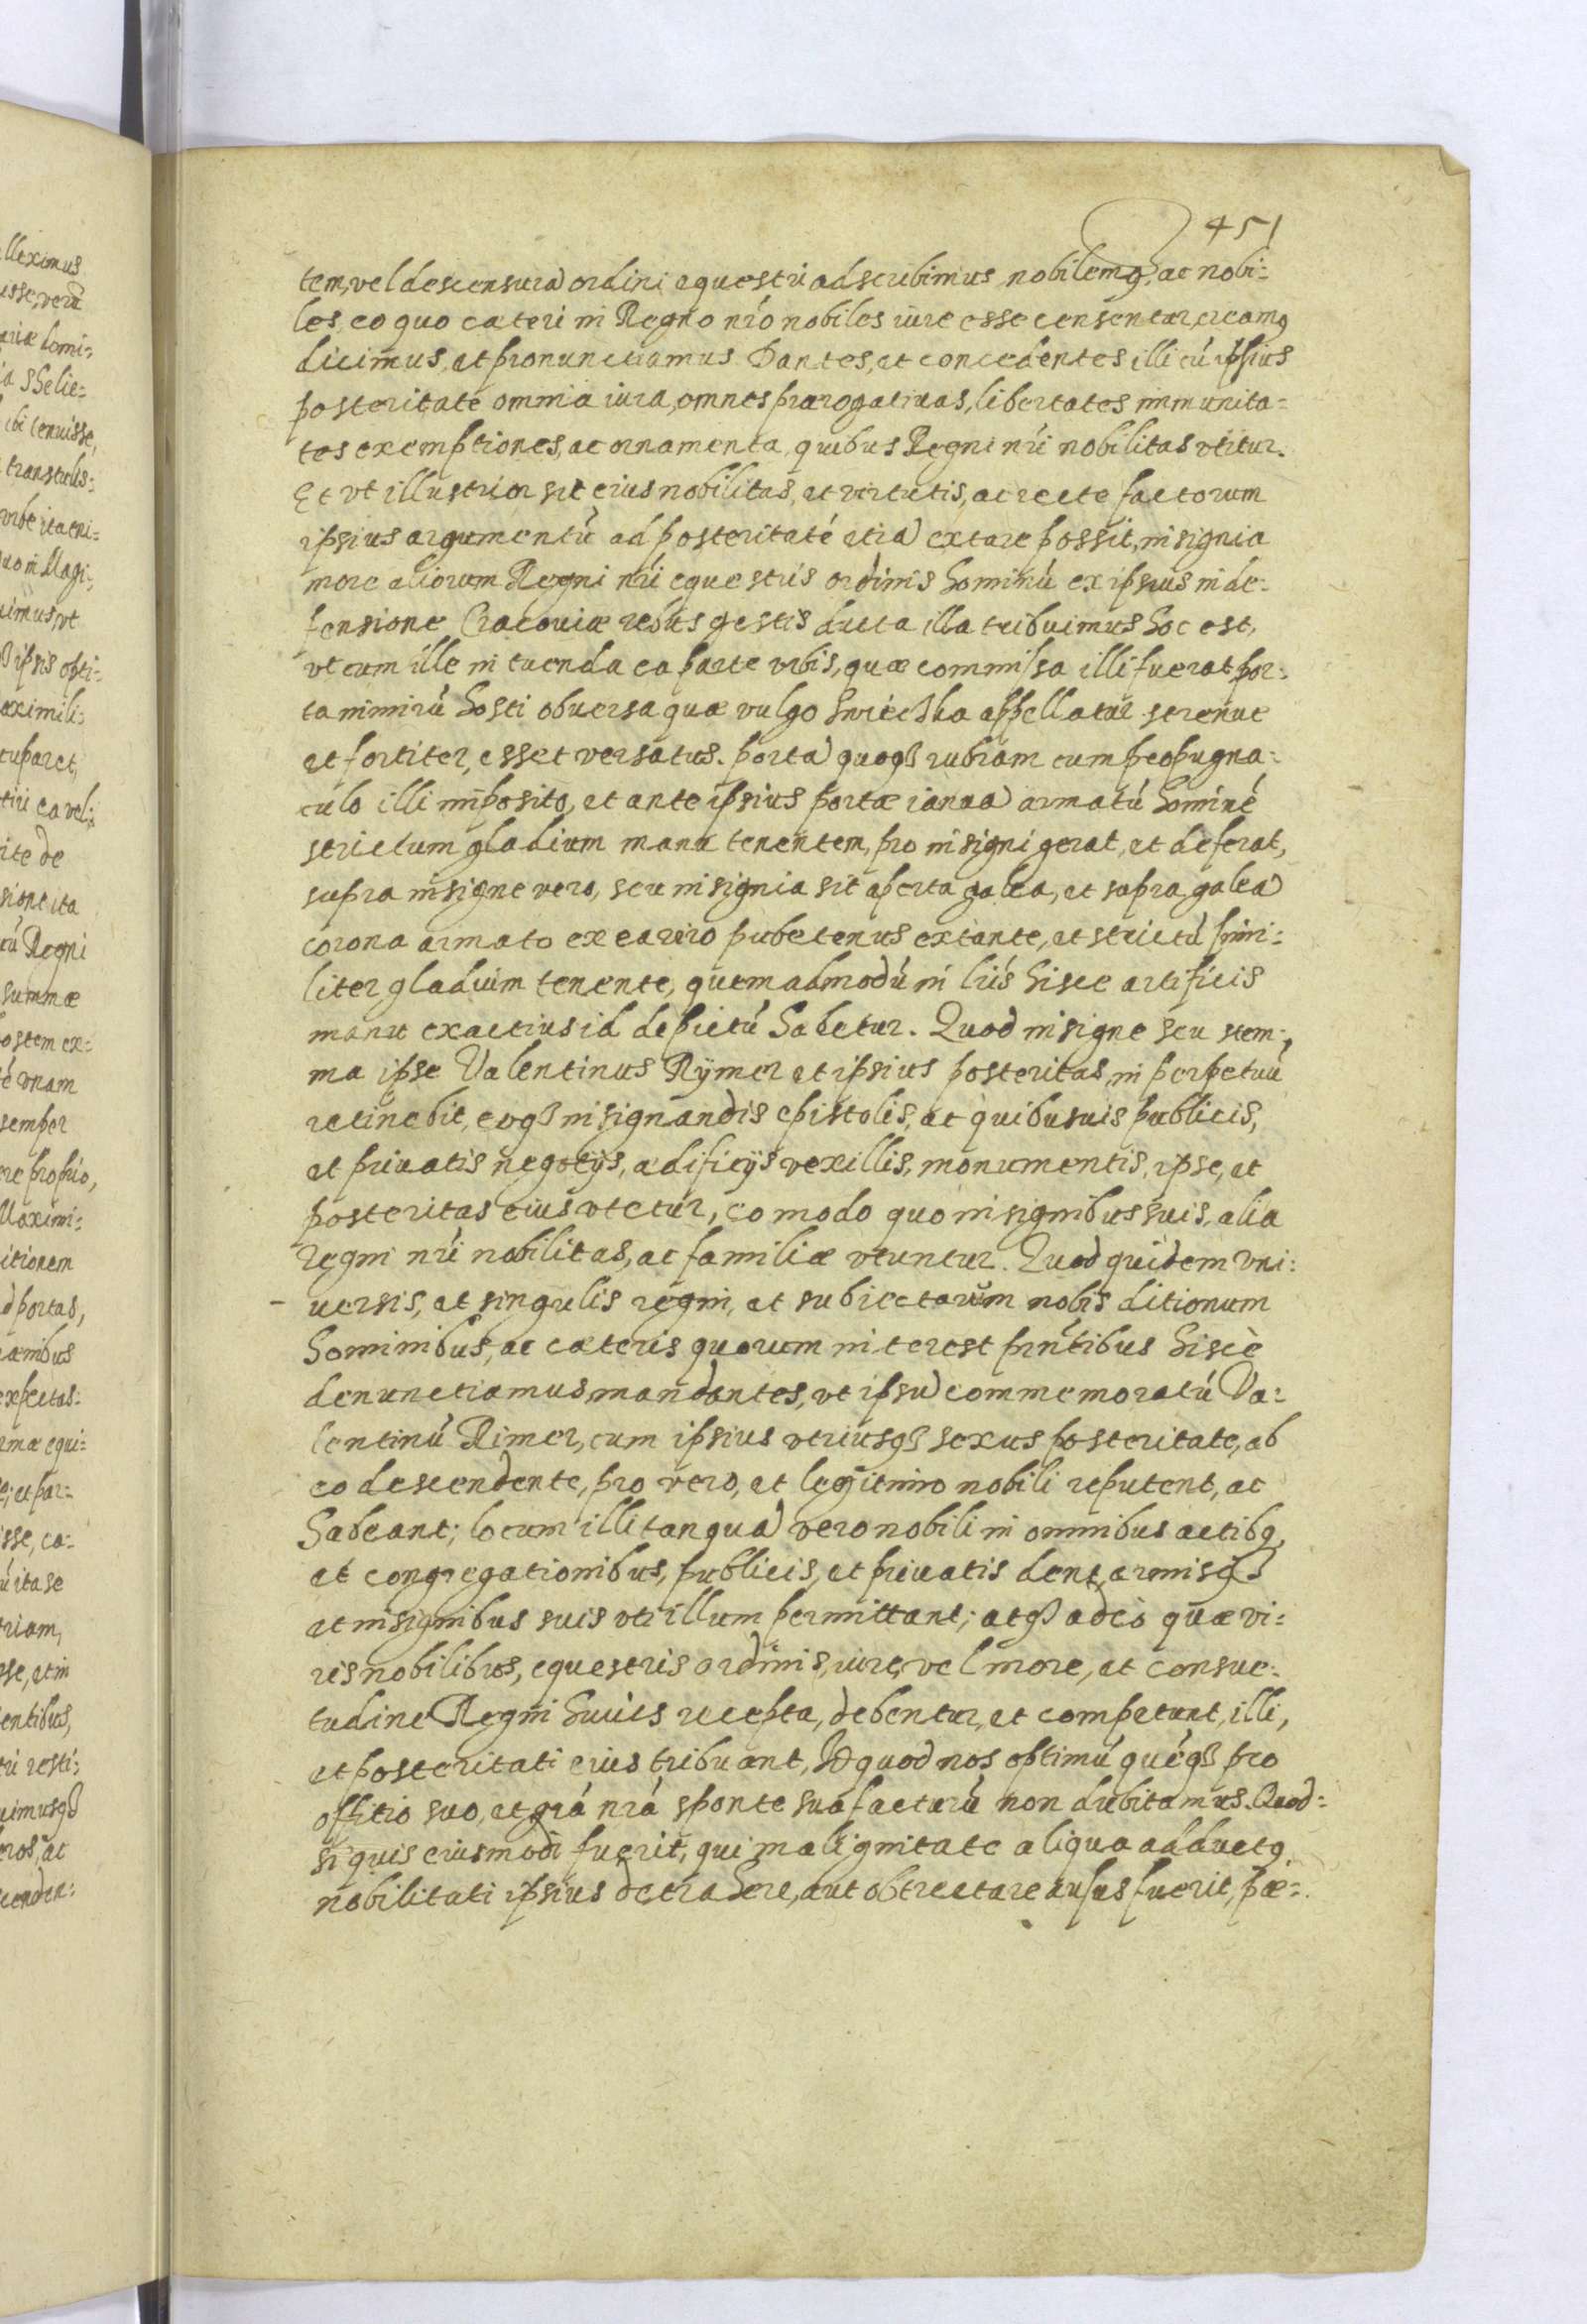 451
tem, vel descensurā ordini equestri adscribimus nobilemq3, ac nobi:
les, eo quo cæteri in Regno nr̄o nobiles iure esse censentur, creamq
dicimus, et pronunctiamus Dantes, et concedentes illi cū ipsius
posteritatē omnia iura, omnes prærogatiuas, libertates immunita:
tes exemptiones, ac ornamenta, quibus Regni nr̄i nobilitas vtitur.
Et vt illustrior sit eius nobilitas, et virtutis, ac recte factorum
ipsius argumentū ad posteritatē etiā extare possit, insignia
more aliorum Regni nr̄i equestris ordinis hominū ex ipsius in de:
fensione Cracouiæ rebus gestis ducta illa tribuimus hoc est,
vt cum ille in tuenda ea parte vrbis, quæ commissa illi fuerat por:
ta nimirū hosti obuersa quæ vulgo Swiecska appellatur strenue
et fortiter, esset versatus. portā quoq3 rubram cum propugna:
culo illi imposito, et ante ipsius portæ ianuā armatū hominē
strictum gladium manu tenentem, pro insigni gerat, et deferat,
supra insigne vero, seu insignia sit aperta galea, et supra galeā
corona armato ex ea viro pube tenus extante, et strictū simi:
liter gladium tenente, quemadmodū in lr̄is hisce artificis
manu exactius id depictū habetur. Quod insigne seu stem:
ma ipse Valentinus Rÿmer et ipsius posteritas, in perpetuū
retinebit, eoq3 insignandis epistolis, ac quibusuis publicis,
et priuatis negotijs, ædificijs vexillis, monumentis, ipse, et
posteritas eius vtetur, eo modo quo insignibus suis, alia
regni nr̄i nobilitas, ac familiæ vtuntur. Quod quidem vni:
uersis, et singulis regni, et subiectarum nobis ditionum
hominibus, ac cæteris quorum interest pn̄tibus hisce
denunctiamus, mandantes, vt ipsū commemoratū Va:
lentinū Rimer, cum ipsius vtriusq3 sexus posteritate, ab
eo descendente, pro vero, et legitimo nobili reputent, ac
habeant; locum illi tanquā vero nobili in omnibus actibq,
et congregationibus, publicis, et priuatis dent, armisq3
et insignibus suis vti illum permittant; atq3 adeò quæ vi:
ris nobilibus, equestris ordinis, iure, vel more, et consue:
tudine Regni huius recepta, debentur, et competunt, illi,
et posteritati eius tribuant, Id quod nos optimū quēq3 pro
offitio suo, et gr̄a nr̄a sponte sua facturū non dubitamus. Quod:
si quis eiusmodi fuerit, qui malignitate aliqua adductq
nobilitati ipsius detrahere, aut obtrectare ausus fuerit, pæ: